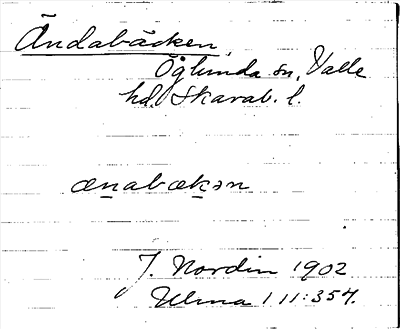 Ändabäcken,
Öglunda sn, Valle
hd, Skarab. l.
æn̲abæk̲ən
J. Nordin 1902
111:354.